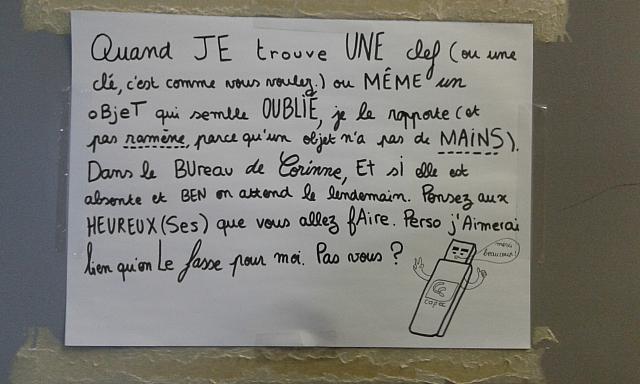 Quand JE trouve UNE clef (ou une
clé, c'est comme vous voulez) ou MÊME un
OBJET qui semble OUBLIÉ, je le rapporte (et
pas ramène, parce qu'un objet n'a pas de MAINS).
Dans le BUreau de Corinne, Et si elle est
absente et BEN on attend le lendemain. Pensez aux
HEUREUX(Ses) que vous allez fAire. Perso j'Aimerai
bien qu'on Le fasse pour moi. Pas vous ?
merci
beaucoup!